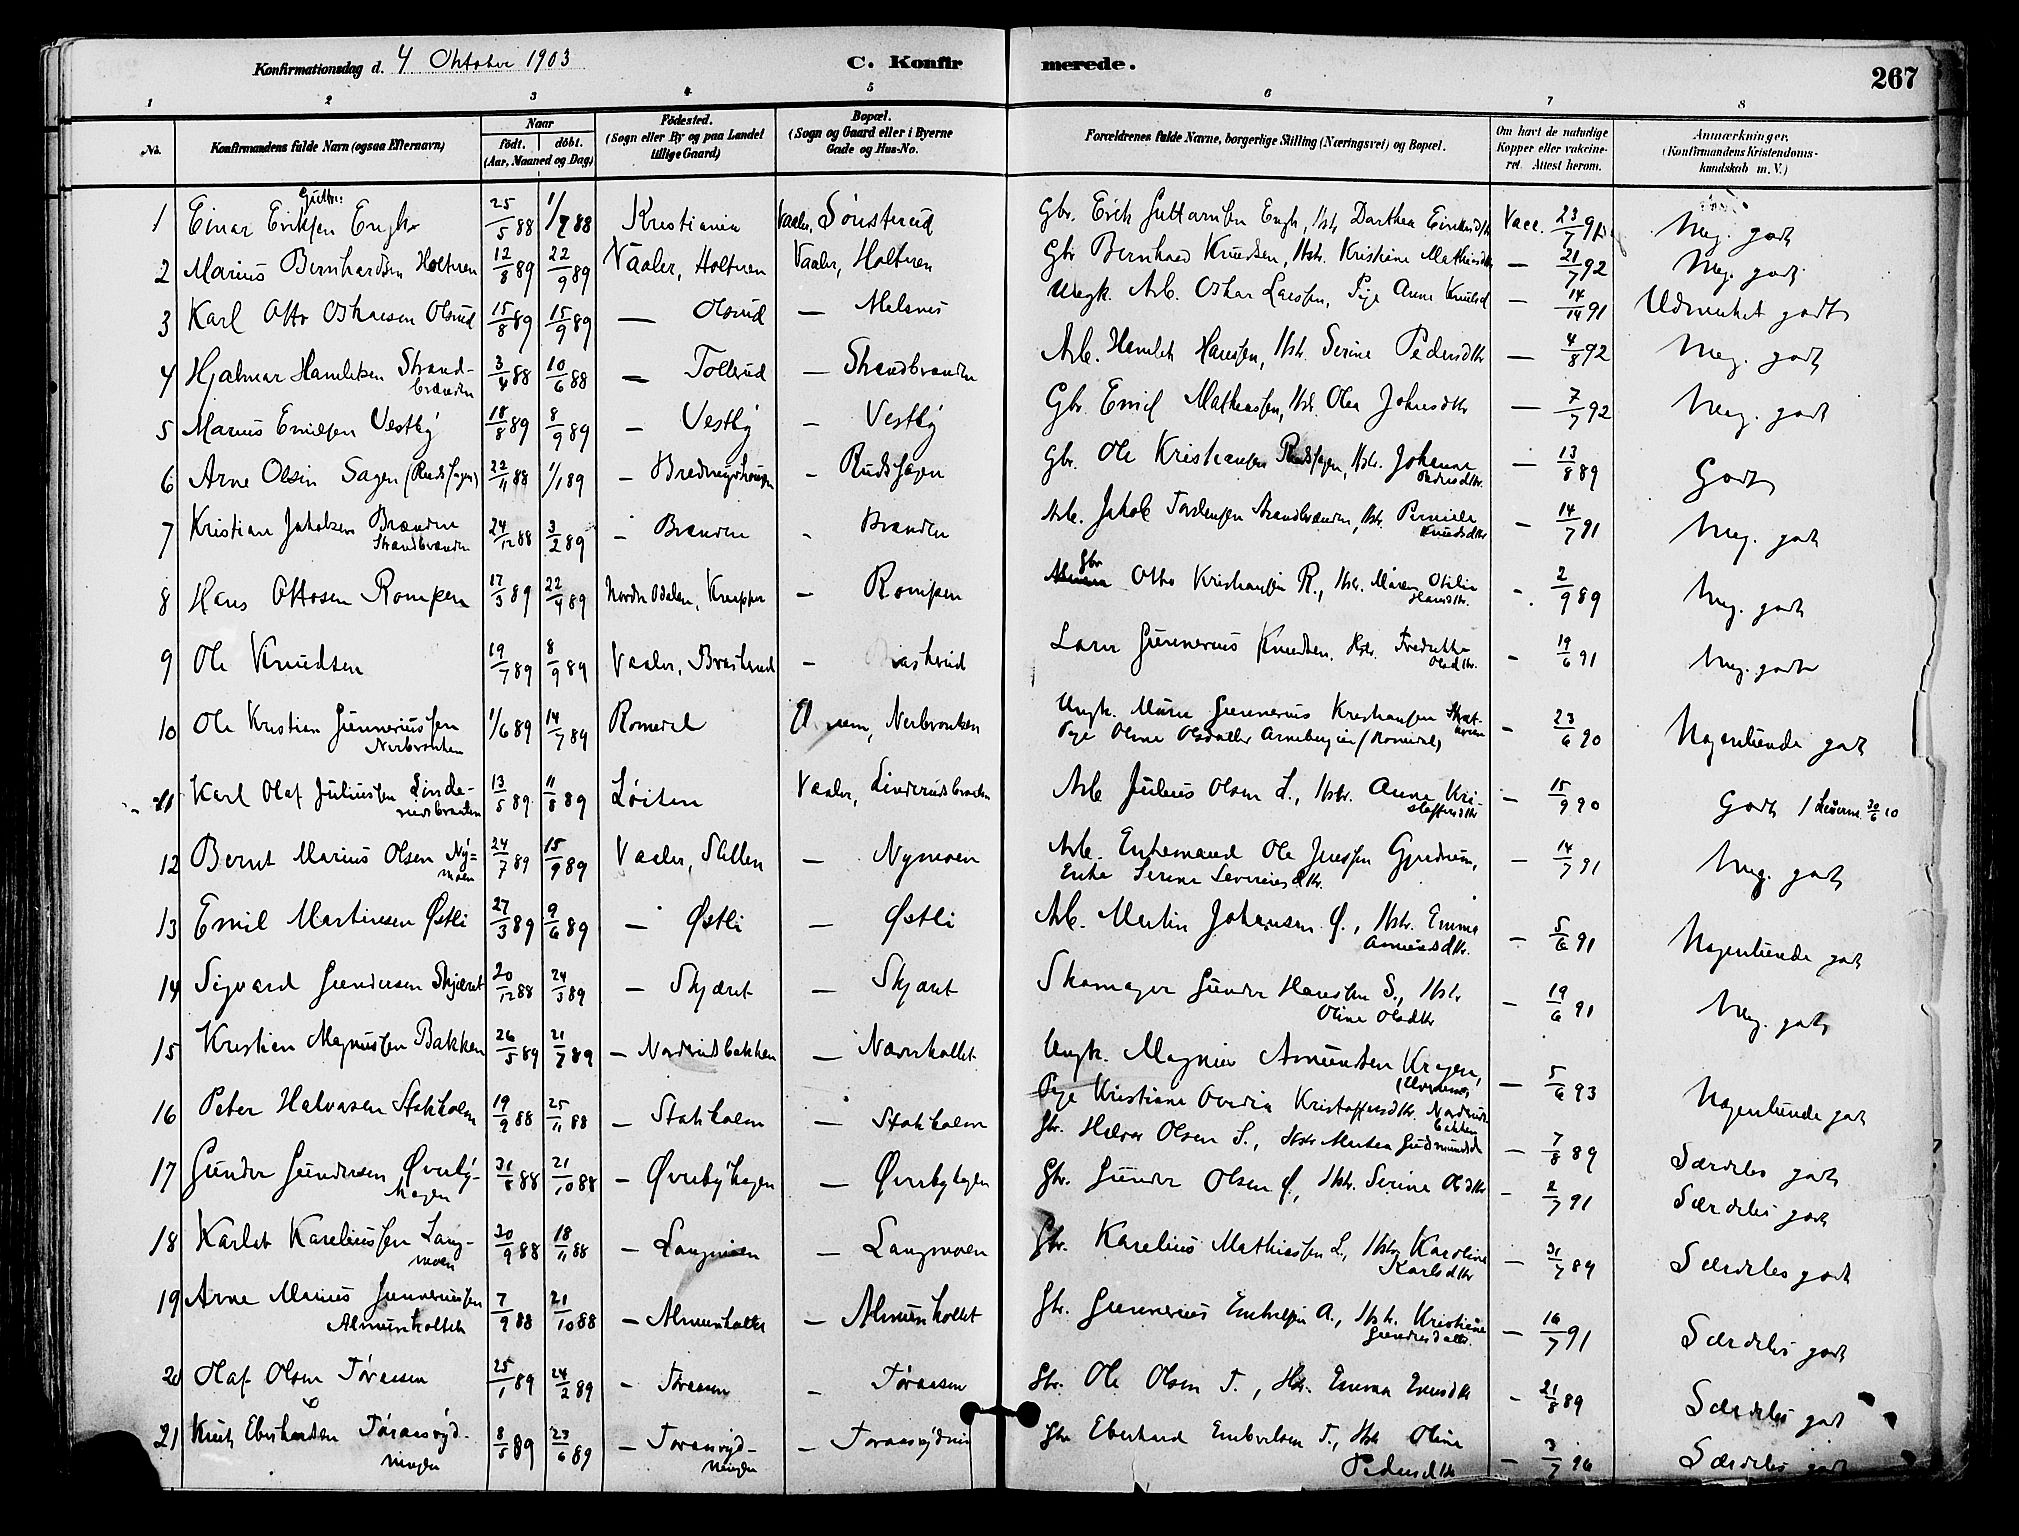 Konfirmationsdag d. 4 Oktober 1903
C. Konfirmerede.
267
1 2 3 4 5 6 7 8
No.
Konfirmandens fulde Navn (ogsaa Efternavn)
Naar
født. døbt.
(Aar, Maaned og Dag)
Fødested.
(Sogn eller By og paa Landet
tillige Gaard)
Bopæl.
(Sogn og Gaard eller i Byerne
Gade og Hus-No.
Forældrenes fulde Navne, borgerlige Stilling (Næringsvei) og Bopæl.
Om havt de naturlige
Kopper eller vakcine-
ret. Attest herom.
Anmærkninger.
(Konfirmandens Kristendoms-
kundskab m. V.)
1 Einar Eriksen Engh 25/5 88 1/7 88 Kristiania Vaaler, Sønsterud Gbr. Erik Guttormsen Engh, Hstr. Darthea Vacc. 23/7 Meg. godt
2 Marius Bernhardsen Holteren 12/8 89 22/9 89 Vaaler, Holteren Vaaler, Holteren Gbr Bernhard Knudsen, Hstr. Kristiane Mathiasdtr — 21/7 92 Meg. godt
3 Karl Otto Oskarsen Olsrud 15/8 89 15/9 89 — Olsrud — Melsnes Ungk. Arb. Oskar Larsen, Pige Anne — 14/14 91 Udmerket godt
4 Hjalmar Hamletsen Strand-
brænden 3/4 88 10/6 88 — Tollerud — Strandbrænden Arb. Hamlet Hansen, Hstr. Serine Pedersdtr — 4/8 92 Meg. godt
5 Marius Emilsen Vestby 18/8 89 8/9 89 — Vestby — Vestby Gbr. Emil Mathiassen, Hstr. Olea Johnsdtr — 7/7 92 Meg. godt
6 Arne Olsen Sagen (Rudssagen) 22/11 88 1/1 89 — — Rudssagen Gbr. Ole Kristiansen Rudssagen, Hstr. Johanne
Pedersdtr. — 13/8 89 Godt
7 Kristian Jakobsen Brænden
Strandbrænden 24/12 88 3/2 89 — Brænden — Brænden Arb. Jakob Torstensen Strandbrænden, Hstr. Pernille
Knudsdtr — 14/7 91 Meg. godt
8 Hans Ottosen Rompen 17/3 89 22/4 89 Nordre Odalen, Knapper — Rompen Gbr Otto Kristiansen R., Hstr. Maren Otilie
Hansdtr. — 2/9 89 Meg. godt
9 Ole Knudsen 19/7 89 8/9 89 Vaaler, Brasterud — Brasterud Gunnerius Knudsen. Hstr. Fredrikke
Olsdtr. — 19/6 91 Meg. godt
10 Ole Kristian Gunneriussen
Nerbronken 1/6 89 14/7 89 Romedal Elverum, Nerbronken Ungk. Murer Gunnerius Kristiansen
Pige Oline Olsdatter Arneberg (Romedal) — 23/6 90 Nogenlunde godt
11 Karl Olaf Juliussen Linde-
rudsbraaten 13/5 89 11/8 89 Løiten Vaaler, Linderudsbraaten Arb Julius Olsen L., Hstr. Anne Kri-
stoffersdtr — 15/9 90 Godt
12 Bernt Marius Olsen Ny-
moen 24/7 89 15/9 89 Vaaler, — Nymoen Arb. Enkemand Ole Jensen Gjerdrum,
Enke Serine Severinsdtr. — 14/7 91 Meg. godt
13 Emil Martinsen Østli 27/3 89 9/6 89 — Østli — Østli Arb. Martin Johansen Ø., Hstr. Emma
— 5/6 91 Nogenlunde godt
14 Sigvard Gundersen Skjæret 20/12 88 24/3 89 — Skjæret — Skjæret Skomager Gunder Hansen S., Hstr
Oline Olsdtr — 19/6 91 Meg. godt
15 Kristian Magnussen Bakken 26/5 89 21/7 89 — Norderudbakken — Nornkollet Ungk. Magnus Amundsen
Pige Kristiane Ovedia Kristoffersdtr. Norderud-
bakken — 5/6 93 Nogenlunde godt
16 Peter Halvorsen Stokholm 19/9 88 25/11 88 — Stokholm — Stokholm Gbr. Halvor Olsen S., Hstr Martea Gudmundsd — 7/8 89 Særdeles godt
17 Gunder Gundersen Øverby-
hagen 31/8 88 21/10 88 — Øverbyhagen — Øverbyhagen Gbr. Gunder Olsen Ø, Hstr. Serine Olsdtr — 2/7 91 Særdeles godt
18 Karlot Kareliussen Lang-
moen 30/9 88 18/11 88 — Langmoen — Langmoen Gbr. Karelius Mathiassen L., Hstr Karoline
Karlsdtr — 31/7 89 Særdeles godt
19 Arne Marius Gunneriussen
Almenkollet 7/9 88 21/10 88 — Almenkollet — Almenkollet Gbr. Gunnerius Embretsen A., Hstr. Kristiane
Gundersdatter. — 16/7 91 Særdeles godt
20 Olaf Olsen Tøraasen 25/1 89 24/2 89 — Tøraasen — Tøraasen Gbr. Ole Olsen T., Hstr. Emma — 21/8 89 Særdeles godt
21 Knut Eberhardsen Tøraasryd-
ningen 8/5 89 23/6 89 — Toraasryd-
ningen — Toraasrydnin Gbr Eberhard Embretsen T., Hstr Oline
Pedersdtr — 3/7 96 Særdeles godt